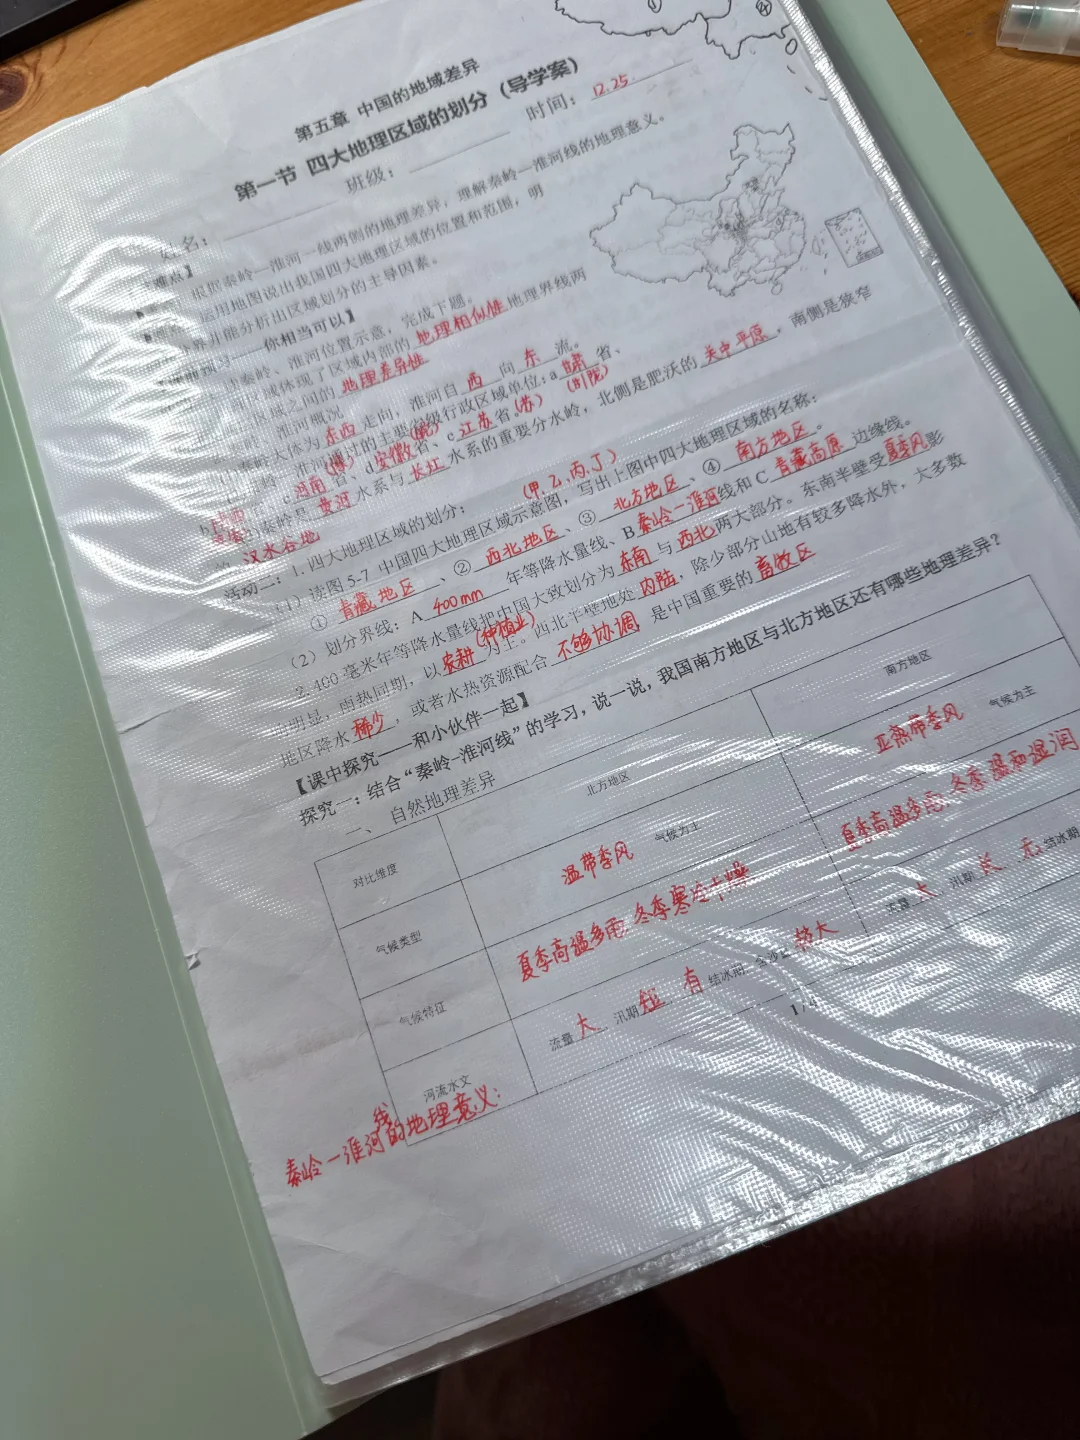 ④
第五章 中国的地域差异
第一节 四大地理区域的划分（导学案）
姓名： 班级： 时间：12.25
难点】
根据秦岭—淮河一线两侧的地理差异，理解秦岭—淮河线的地理意义。
运用地图说出我国四大地理区域的位置和范围，明
界并能分析出区域划分的主导因素。
预习——你相当可以】
秦岭、淮河位置示意，完成下题。
区域体现了区域内部的地理相似性地理界线两
区域之间的地理差异性
淮河概况
秦岭大体为东西走向，淮河自西向东流。
淮河通过的主要省级行政区域单位：a甘肃省、(甘陇)
b c河南(豫)省、d安徽(皖)省、e江苏省(苏)。
秦岭是黄河水系与长江水系的重要分水岭，北侧是肥沃的关中平原，南侧是狭窄
的汉水谷地
活动二：1.四大地理区域的划分：(甲、乙、丙、丁)
（1）读图5-7 中国四大地理区域示意图，写出上图中四大地理区域的名称：
①青藏地区、②西北地区、③北方地区、④南方地区。
（2）划分界线：A 400mm年等降水量线、B秦岭—淮河线和C青藏高原边缘线。
2.400毫米年等降水量线把中国大致划分为东南与西北两大部分。东南半壁受夏季风影
响明显，雨热同期，以农耕(种植业)为主。西北半壁地处内陆，除少部分山地有较多降水外，大多数
地区降水稀少，或者水热资源配合不够协调，是中国重要的畜牧区
【课中探究——和小伙伴一起】
探究一：结合“秦岭-淮河线”的学习，说一说，我国南方地区与北方地区还有哪些地理差异？
一、自然地理差异
对比维度 北方地区 南方地区
气候类型 温带季风 气候为主 亚热带季风 气候为主
气候特征 夏季高温多雨,冬季寒冷干燥 夏季高温多雨,冬季温和湿润
河流水文 流量大 汛期短 有结冰期 含沙量较大 流量大 汛期长 无结冰期
秦岭—淮河线的地理意义：